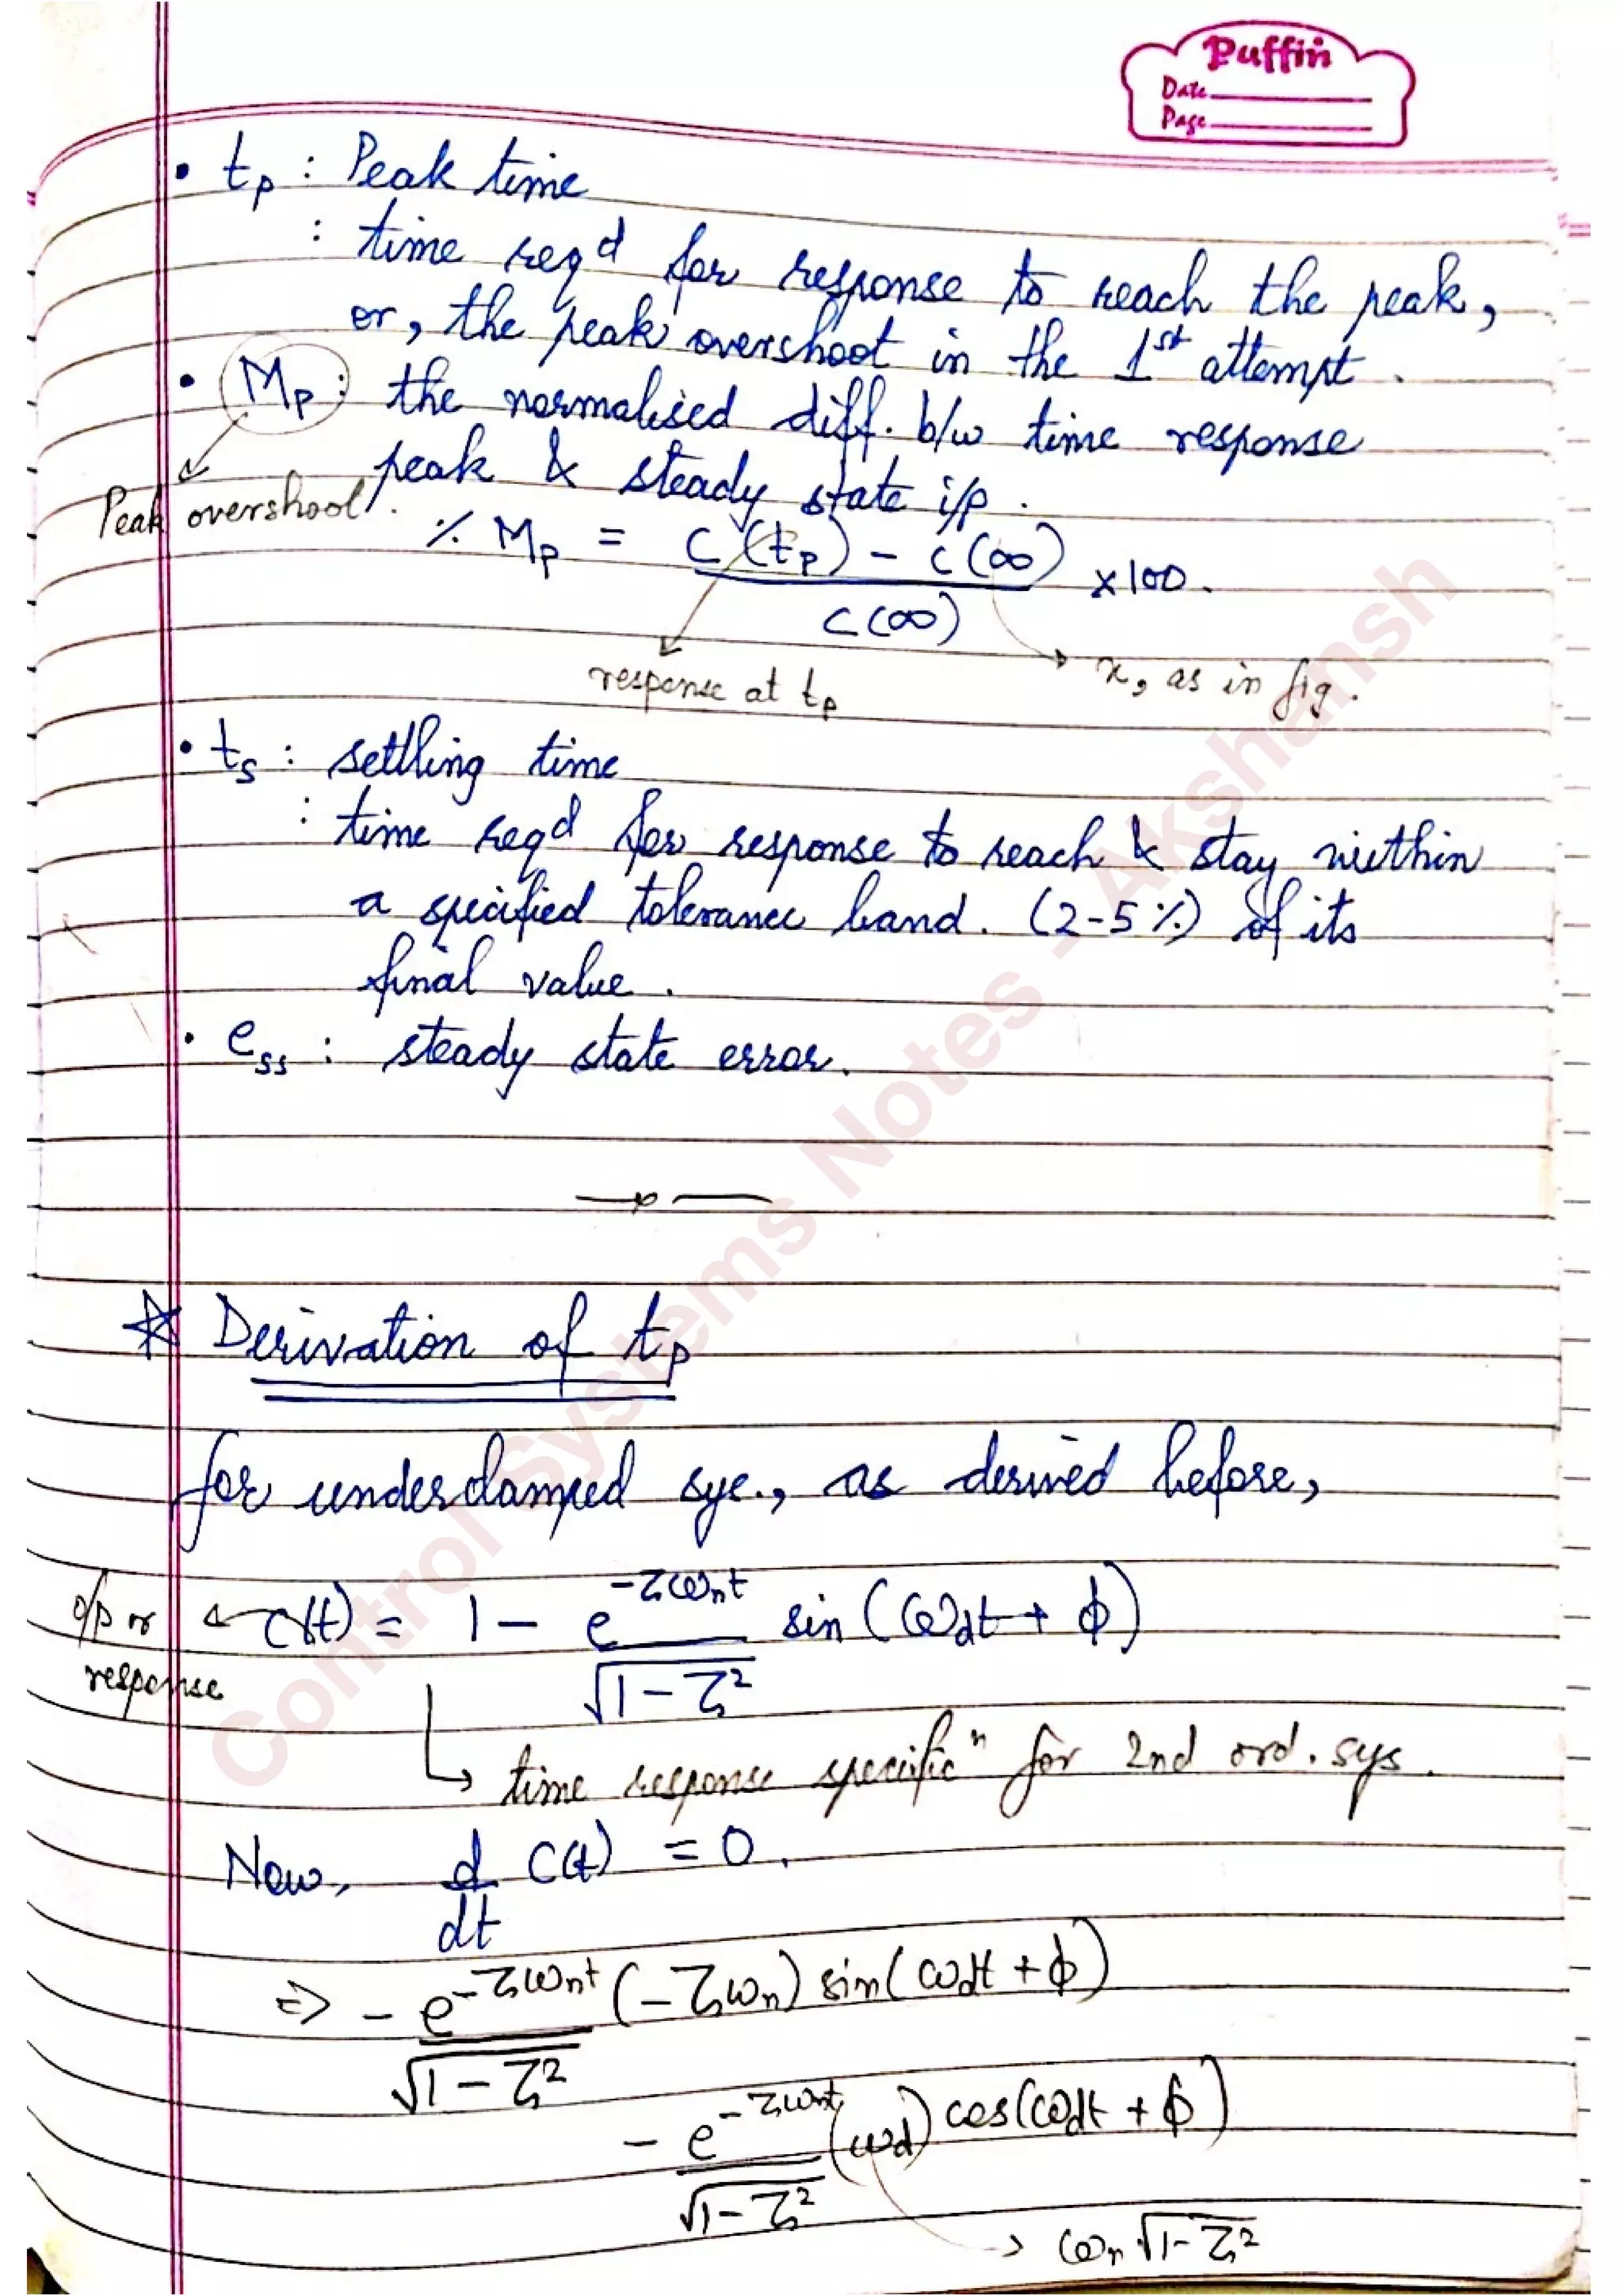 Puffin
Date
Page
• tp : Peak time
: time reqd for response to reach the peak,
or, the peak overshoot in the 1st attempt.
• Mp : the normalised diff. b/w time response
peak & steady state i/p.
Peak overshoot.
% Mp = C(tp) - C(∞) / C(∞) ×100.
response at tp
x, as in fig.
• ts : settling time
: time reqd for response to reach & stay within
a specified tolerance band. (2-5%) of its
final value.
• ess : steady state error.
☆ Derivation of tp
for underdamped sys., as derived before,
o/p or response ← c(t) = 1 - e^(-ζωnt) / √(1-ζ²) sin(ωdt + φ)
↳ time response specificn for 2nd ord. sys.
Now, d/dt C(t) = 0.
⇒ - e^(-ζωnt) / √(1-ζ²) (-ζωn) sin(ωdt + φ)
- e^(-ζωnt) / √(1-ζ²) (ωd) cos(ωdt + φ)
→ ωn√(1-ζ²)
Control Systems Notes - Akshansh